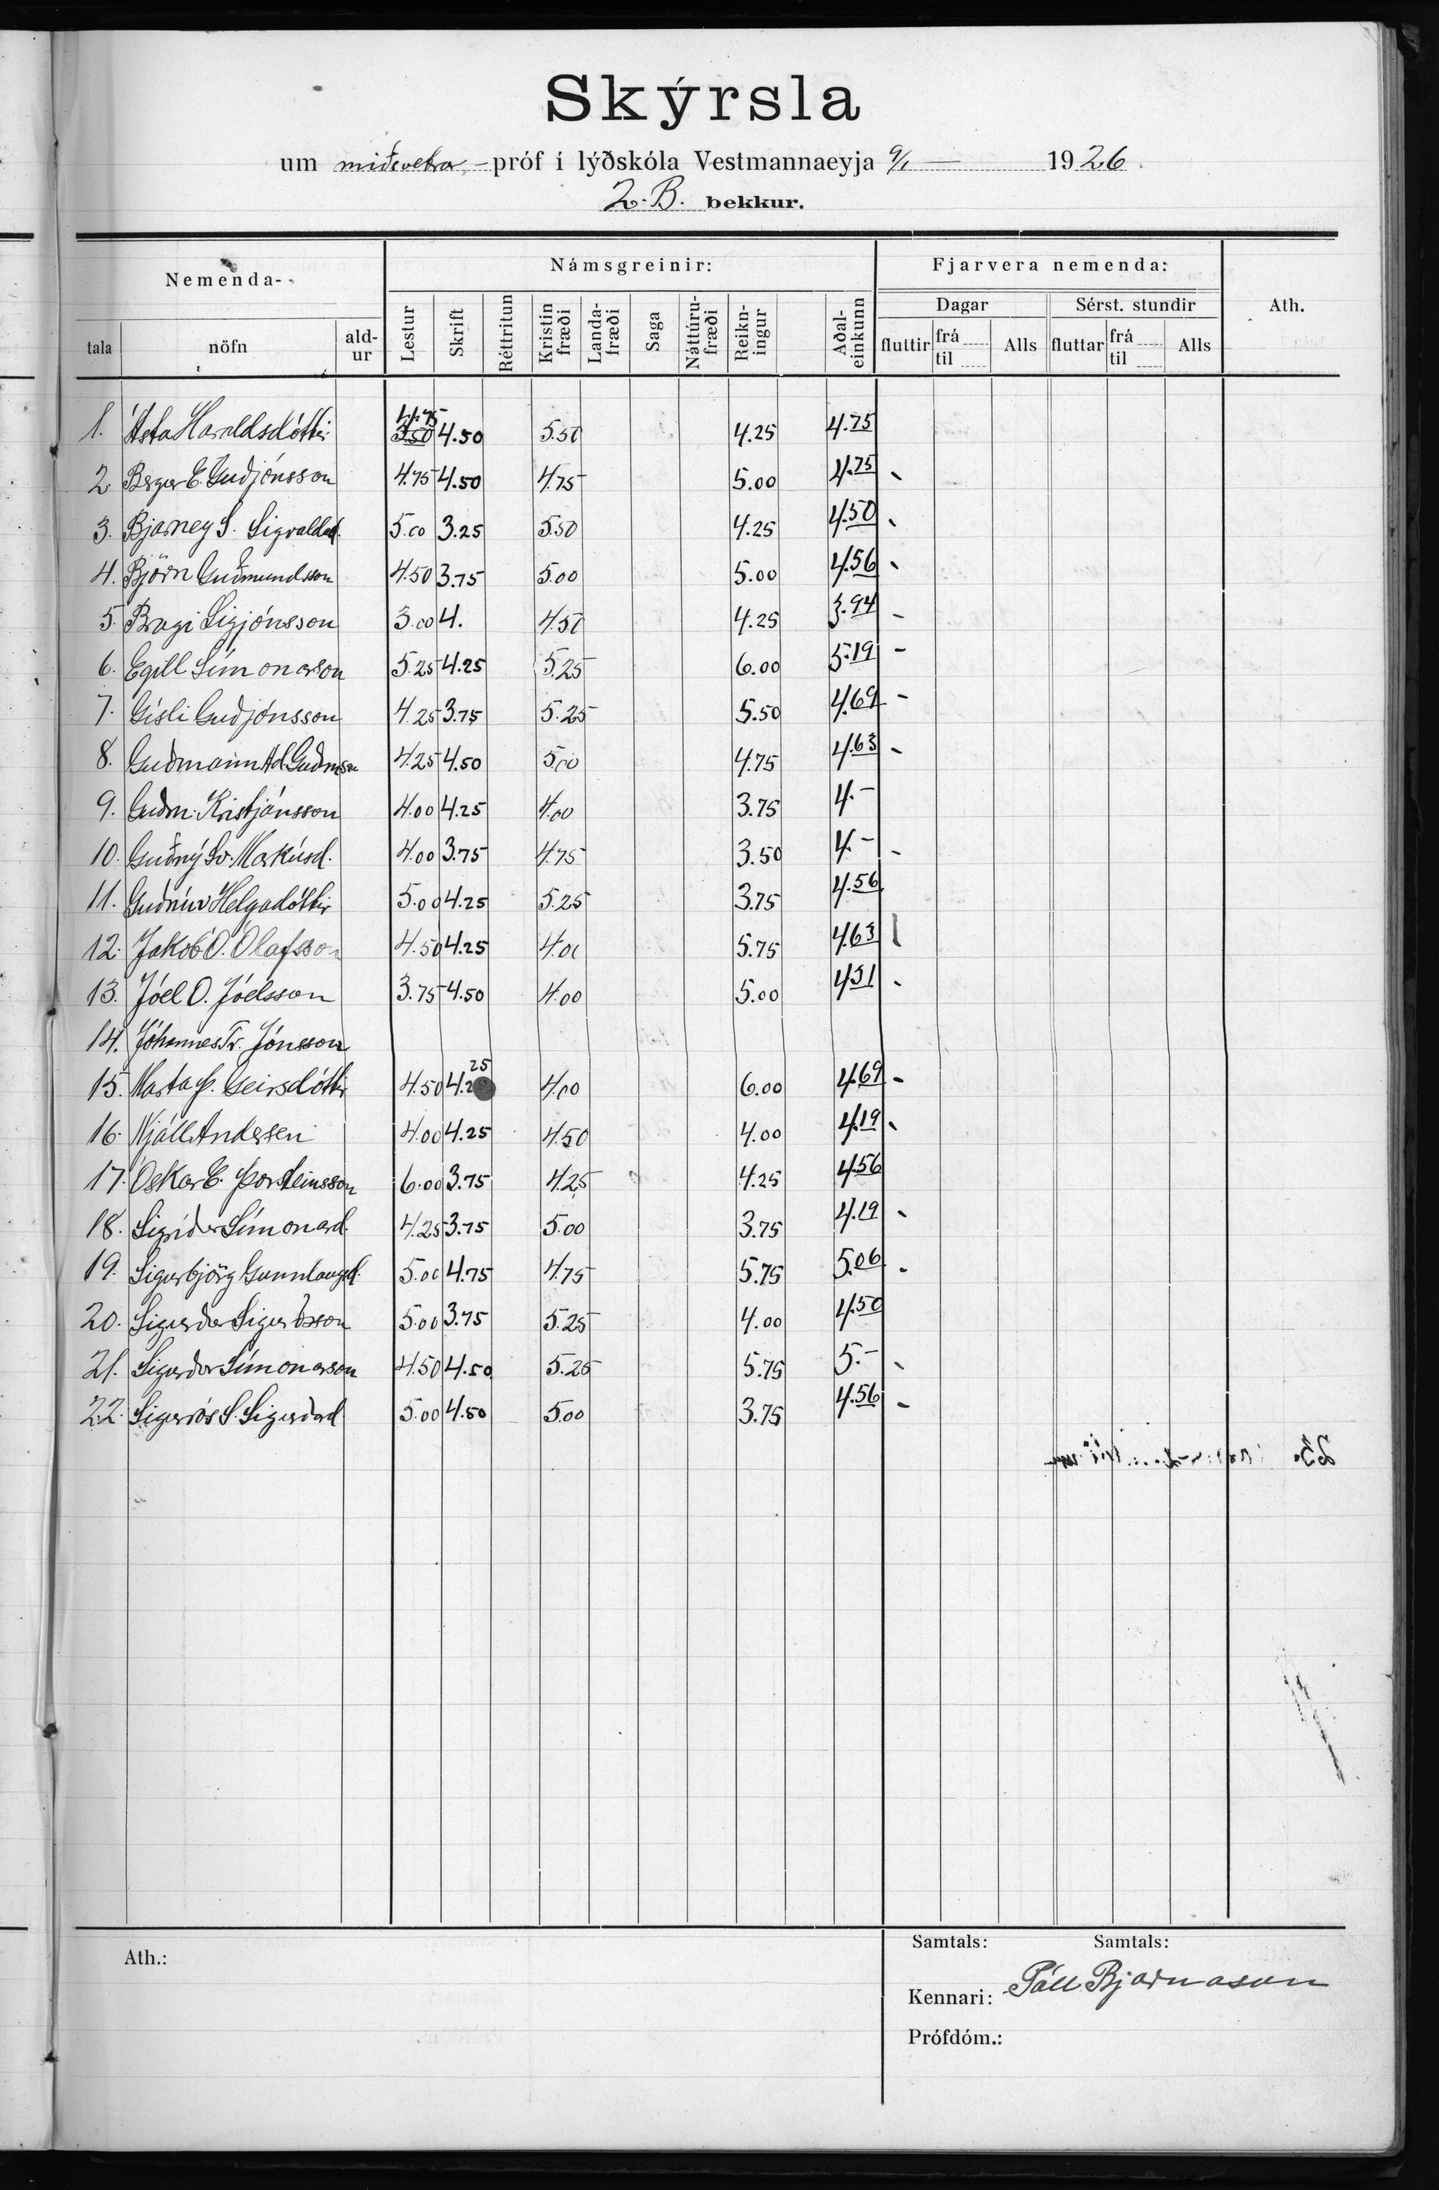 Skýrsla
um miðsvetra-próf í lýðskóla Vestmannaeyja 9/1 — 1926
2. B. bekkur.
Nemenda- Námsgreinir: Fjarvera nemenda: Ath.
Dagar Sérst. stundir
tala nöfn ald-ur Lestur Skrift Réttritun Kristin fræði Landa-fræði Saga Náttúru-fræði Reikn-ingur Aðal-einkunn fluttir frá til Alls fluttar frá til Alls
1. Ásta Haraldsdóttir 4.75 3.50 4.50 5.50 4.25 4.75
2. Berger E. Guðjónsson 4.75 4.50 4.75 5.00 4.75
3. Bjarney S. Sigvaldad. 5.00 3.25 5.50 4.25 4.50
4. Björn Guðmundsson 4.50 3.75 5.00 5.00 4.56
5. Bragi Sigjónsson 3.00 4. 4.50 4.25 3.94
6. Egill Símonarson 5.25 4.25 5.25 6.00 5.19
7. Gísli Guðjónsson 4.25 3.75 5.25 5.50 4.69
8. Guðmann Ad. Guðmss 4.25 4.50 5.00 4.75 4.63
9. Guðm. Kristjánsson 4.00 4.25 4.00 3.75 4.–
10. Guðný Sv. Markúsd. 4.00 3.75 4.75 3.50 4.–
11. Guðrún Helgadóttir 5.00 4.25 5.25 3.75 4.56
12. Jakob Ó. Ólafsson 4.50 4.25 4.00 5.75 4.63
13. Jóel O. Jóelsson 3.75 4.50 4.00 5.00 4.31
14. Jóhannes Tr. Jónsson
15. Marta Þ. Geirsdóttir 4.50 4.25 4.00 6.00 4.69
16. Njáll Andersen 4.00 4.25 4.50 4.00 4.19
17. Óskar E. Þorsteinsson 6.00 3.75 4.25 4.25 4.56
18. Sigríður Símonard. 4.25 3.75 5.00 3.75 4.19
19. Sigurbjörg Gunnlaugsd. 5.00 4.75 4.75 5.75 5.06
20. Sigurður Sigurðsson 5.00 3.75 5.25 4.00 4.50
21. Sigurður Símonarson 4.50 4.50 5.25 5.75 5.–
22. Sigurrós S. Sigurðard 5.00 4.50 5.00 3.75 4.56
Ath.: Samtals: Samtals:
Kennari: Páll Bjarnason
Prófdóm.: